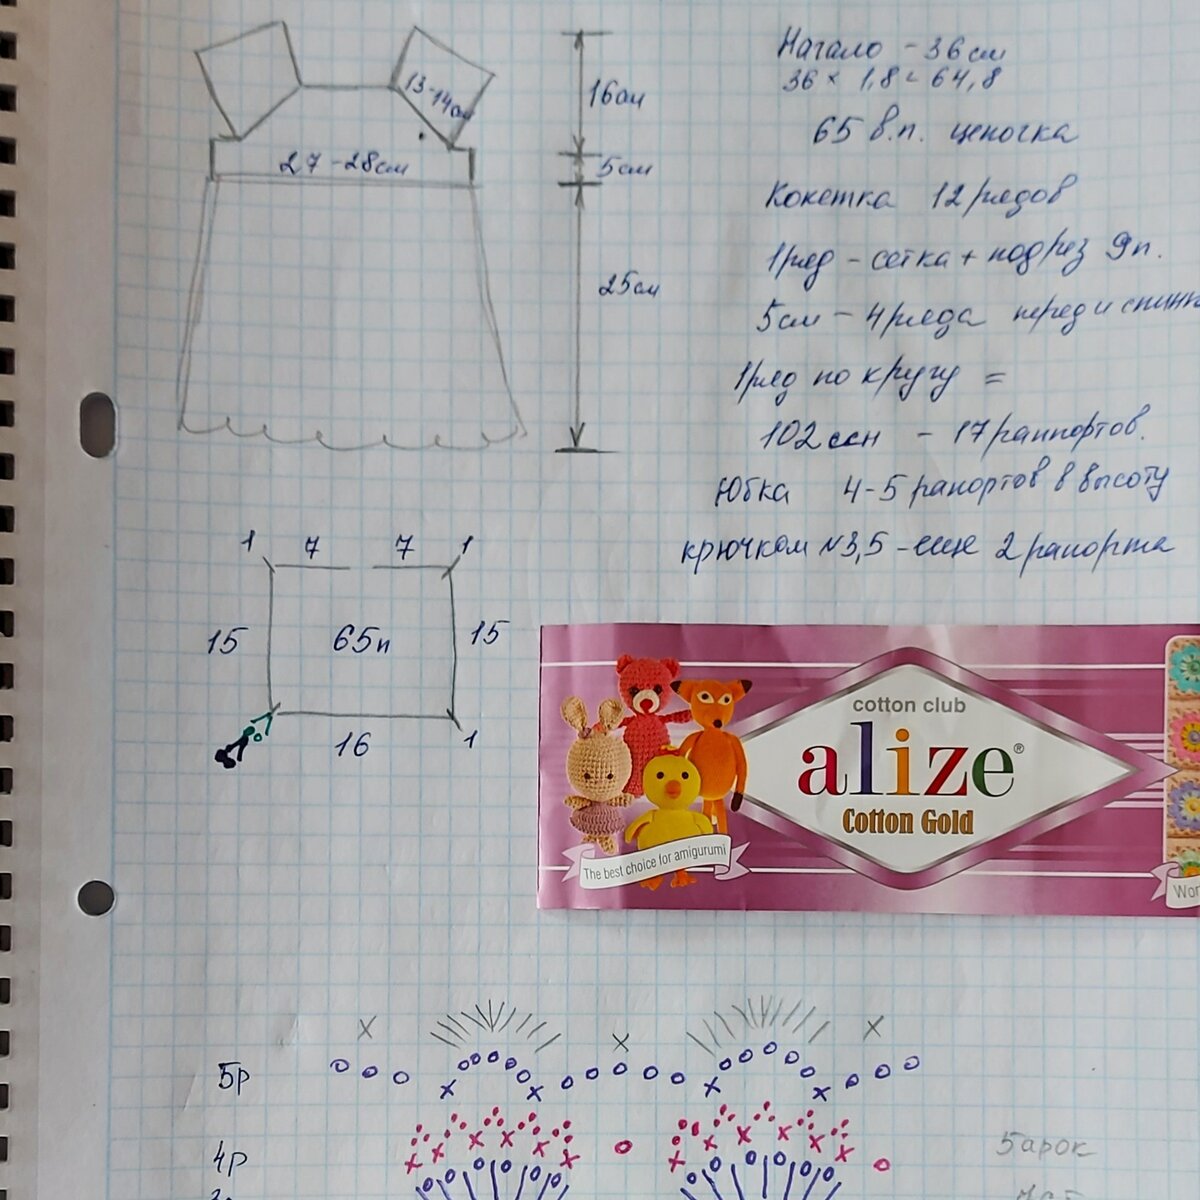 Начало - 36 см
36 × 1,8 = 64,8
65 в.п. цепочка
Кокетка 12 рядов
1 ряд - сетка + подрез 9п.
5см - 4 ряда перед и спинк
1 ряд по кругу =
102 ссн - 17 раппортов.
Юбка 4-5 рапортов в высоту
крючком №3,5 - еще 2 рапорта
13-14см
16см
27-28см
5см
25см
1 7 7 1
15 65п 15
16 1
cotton club
alize®
Cotton Gold
The best choice for amigurumi
Wor
5р
4р
5 арок